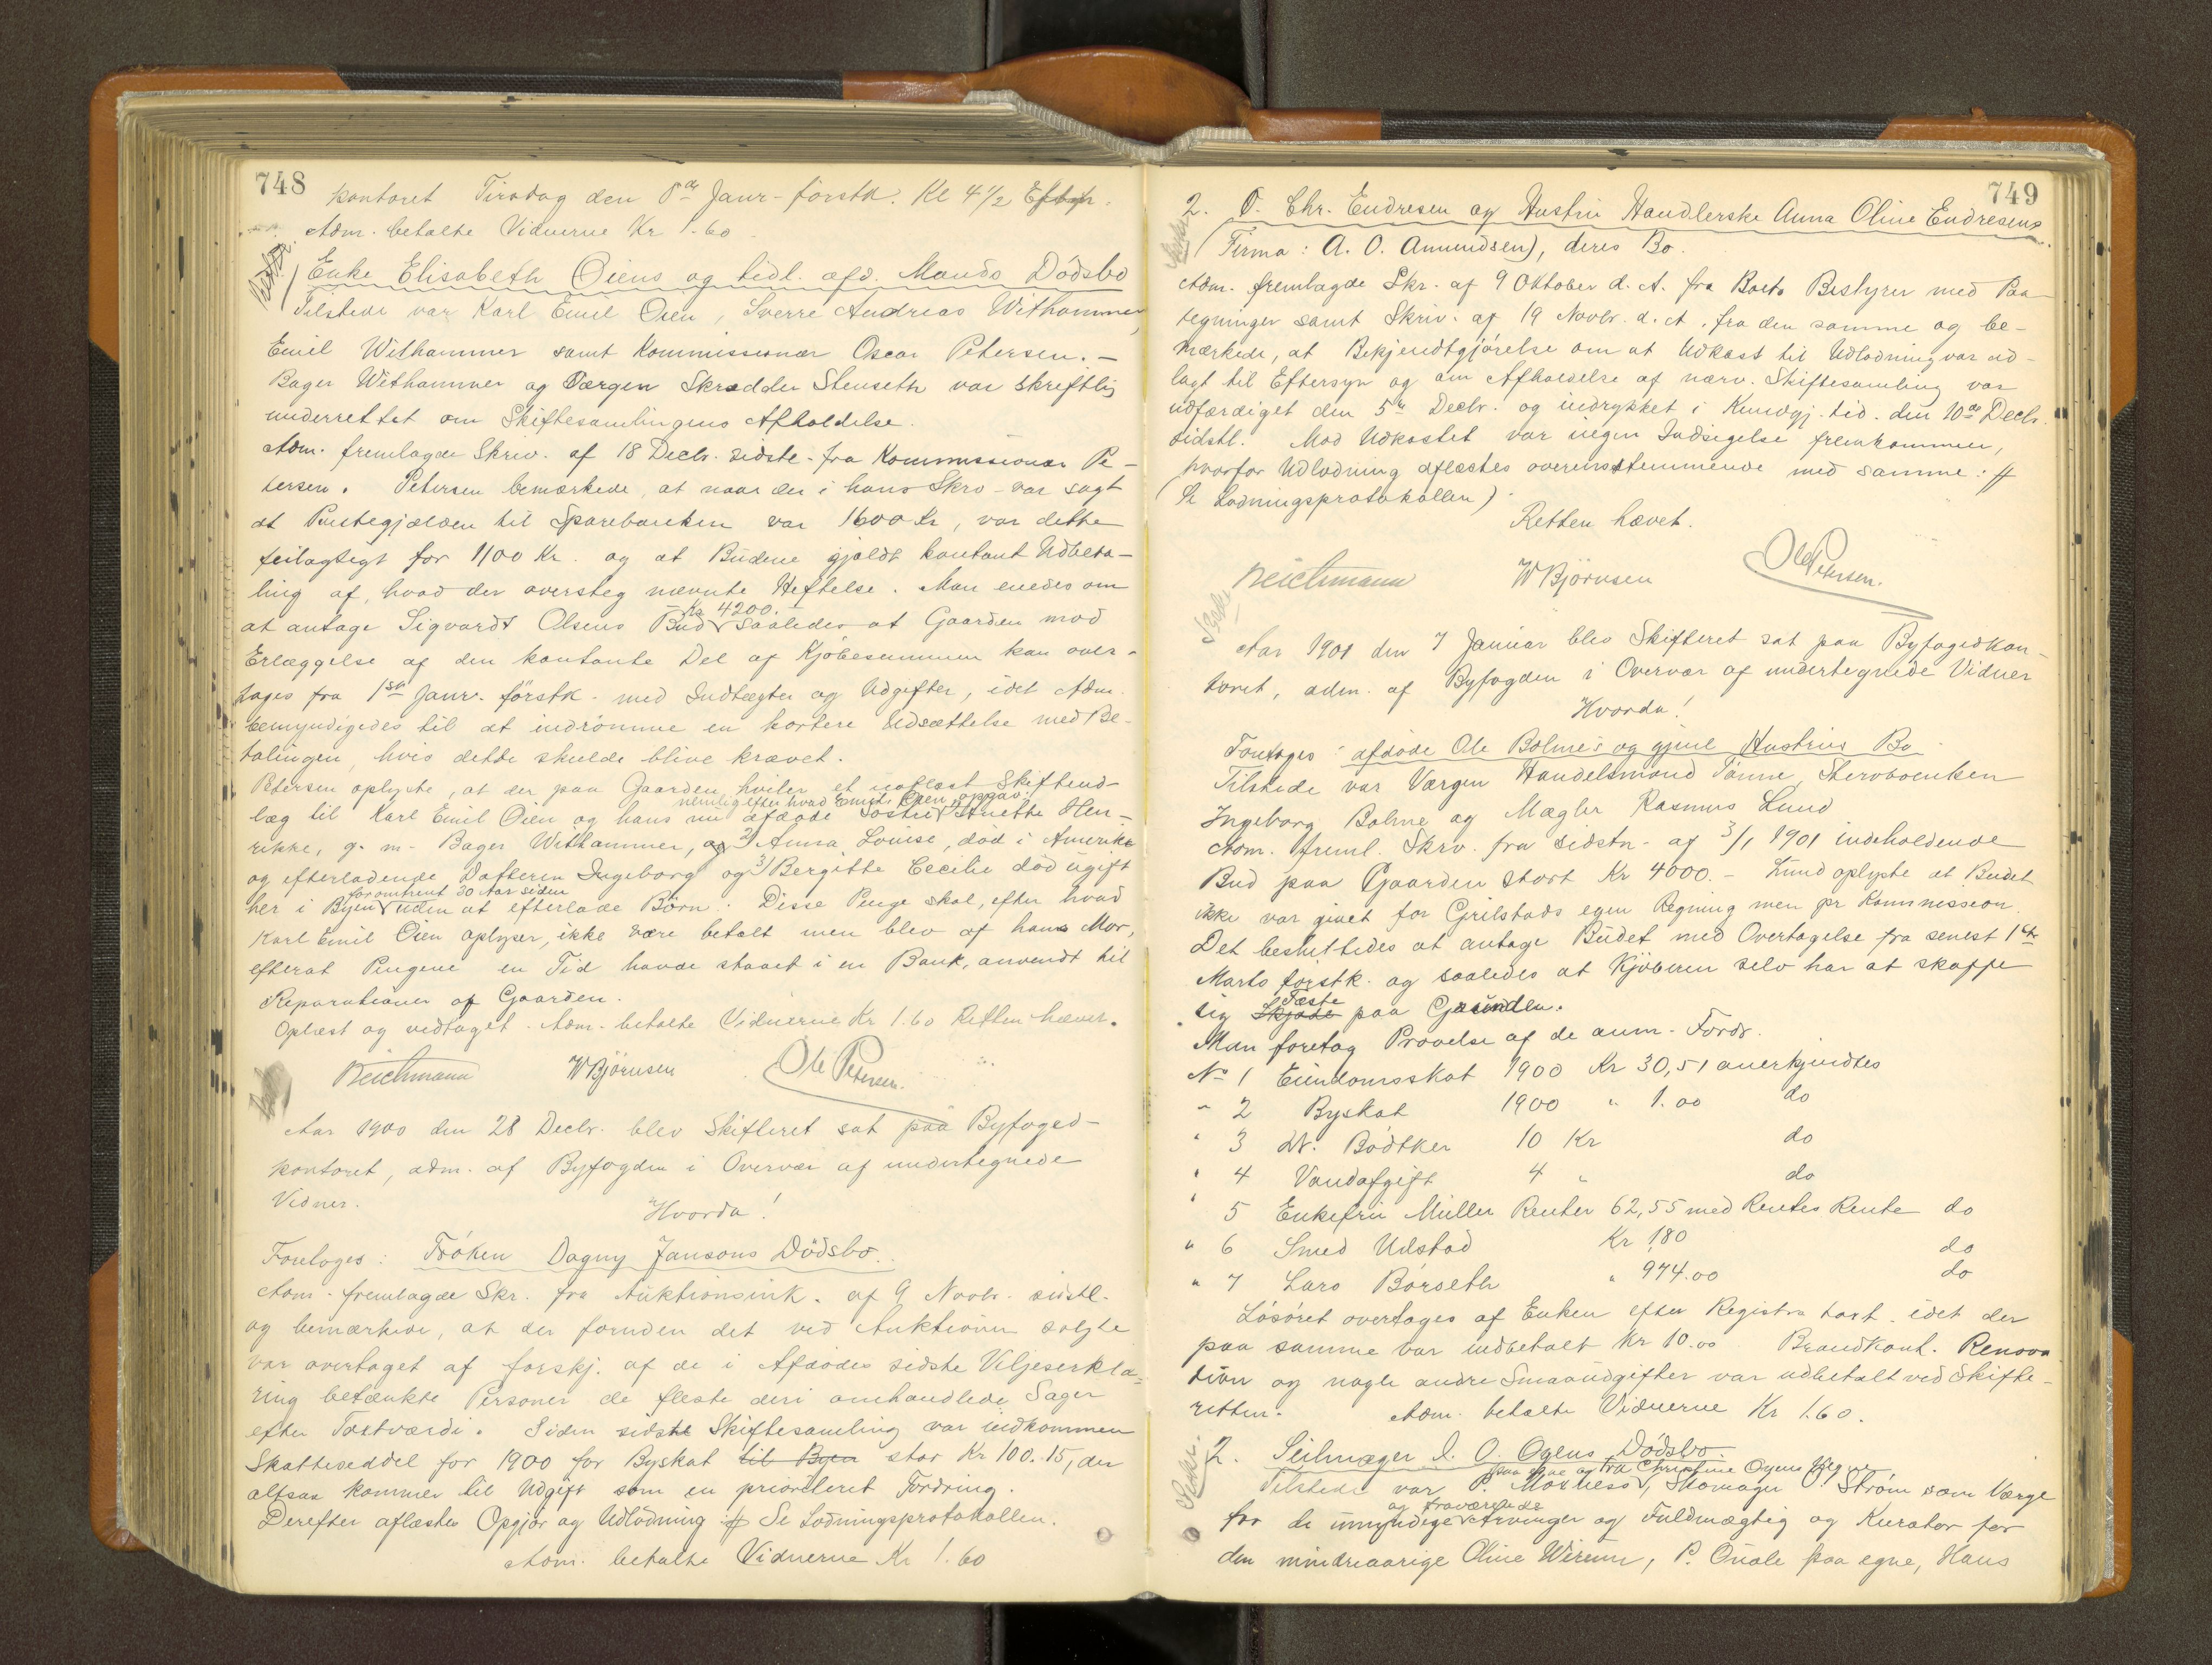 748
kontoret Tirsdag den 8de Janr. förstk. Kl 4½ Eftr.
Adm. betalte Vidnerne Kr 1.60
Enke Elisabeth Öiens og tidl. afd. Mands Dödsbo
Tilstede var Karl Emil Öien, Sverre Andreas Withammer,
Emil Withammer samt Kommissionær Oscar Petersen. —
Bager Withammer og Værgen Skrædder Stenseth var skriftlig
underrettet om Skiftesamlingens Afholdelse.
Adm. fremlagde Skriv. af 18 Decbr. sidstl. fra Kommissionær Pe-
tersen. Petersen bemærkede, at naar der i hans Skrv. var sagt
at Pantegjælden til Sparebanken var 1600 Kr, var dette
feilagtigt for 1100 Kr. og at Budene gjaldt kontant Udbeta-
ling af, hvad der oversteg nævnte Heftelse. Man enedes om
Kr 4200.
at antage Sigvardt Olsens Bud saaledes at Gaarden mod
Erlæggelse af den kontante Del af Kjöbesummen kan over-
tages fra 1ste Janr. förstk. med Indtægter og Udgifter, idet Adm.
bemyndigedes til at indrömme en kortere Udsættelse med Be-
talingen, hvis dette skulde blive krævet.
Petersen oplyste, at der paa Gaarden hviler et uaflæst Skifteud-
nemlig efter hvad Emil Öien opgav:
læg til Karl Emil Öien og hans nu afdöde Söstre Anette Hen-
rikke, g. m. Bager Withammer, og 2/ Anna Louise, död i Amerika
og efterladende Datteren Ingeborg og 3/ Bergitte Cecilie död ugift
for omtrent 30 Aar siden
her i Byen uden at efterlade Börn. Disse Penge skal, efter hvad
Karl Emil Öien oplyser, ikke være betalt men blev af hans Mor,
efterat Pengene en Tid havde staaet i en Bank, anvendt til
Reparationer af Gaarden.
Oplæst og vedtaget. Adm. betalte Vidnerne Kr 1.60 Retten hævet.
Beichmann W Björnsen Ole Petersen.
Aar 1900 den 28 Decbr. blev Skifteret sat paa Byfoged-
kontoret, adm. af Byfogden i Overvær af undertegnede
Vidner.
Hvorda!
Foretoges: Fröken Dagny Jansons Dödsbo.
Adm. fremlagde Skr. fra Auktionsink. af 9 Novbr. sidstl.
og bemærkede, at der foruden det ved Auktionen solgte
var overtaget af forskj. af de i Afdödes sidste Viljeserklæ-
ring betænkte Personer de fleste deri omhandlede Sager
efter Taxtværdi. Siden sidste Skiftesamling var indkommen
Skatteseddel for 1900 for Byskat til Byen stor Kr 100.15, der
altsaa kommer til Udgift som en prioriteret Fordring.
Derefter aflæstes Opgjör og Udlodning :# Se Lodningsprotokollen.
Adm. betalte Vidnerne Kr 1.60
749
2. O. Chr. Endresen og Hustru Handlerske Anna Oline Endresens
(Firma: A. O. Amundsen), deres Bo.
Adm. fremlagde Skr. af 9 Oktober d. A. fra Boets Bestyrer med Paa-
tegninger samt Skriv. af 19 Novbr. d. A. fra den samme og be-
mærkede, at Bekjendtgjörelse om at Udkast til Udlodning var ud-
lagt til Eftersyn og om Afholdelse af nærv. Skiftesamling var
udfærdiget den 5te Decbr. og indrykket i Kundgj. tid. den 10de Decbr.
sidstl. Mod Udkastet var ingen Indsigelse fremkommen,
hvorfor Udlodning aflæstes overensstemmende med samme: #
(se Lodningsprotokollen).
Retten hævet.
Beichmann W Björnsen Ole Petersen.
Aar 1901 den 7 Januar blev Skifteret sat paa Byfogedkon-
toret, adm. af Byfogden i Overvær af undertegnede Vidner
Hvorda!
Foretoges: afdöde Ole Bolme's og gjenl. Hustrus Bo
Tilstede var Værgen Handelsmand Tånne, Stervboenken
Ingeborg Bolme og Mægler Rasmus Lund
Adm. freml. Skrv. fra sidstn. af 3/1 1901 indeholdende
Bud paa Gaarden stort Kr 4000. – Lund oplyste at Budet
ikke var givet for Grilstads egen Regning men pr Kommission.
Det besluttedes at antage Budet med Overtagelse fra senest 1ste
Marts förstk. og saaledes at Kjöberen selv har at skaffe
Fæste
sig Skjöde paa Grunden.
Man foretog Prövelse af de anm. Fordr.
No 1 Eiendomsskat 1900 Kr 30,51 anerkjendtes
" 2 Byskat 1900 " 1.00 do
" 3 Dr. Bödtker 10 Kr do
" 4 Vandafgift 4 " do
" 5 Enkefru Müller Renter 62,55 med Rentes Rente do
" 6 Smed Udstad Kr 1,80 do
" 7 Lars Börseth " 974.00 do
Lösöret overtages af Enken efter Registr. taxt. idet der
paa samme var indbetalt Kr 10.00 Brandkont. Renova
tion og nogle andre Smaaudgifter var udbetalt ved Skifte-
retten. Adm. betalte Vidnerne Kr 1.60.
2. Seilmager I. O. Oyens Dödsbo
paa egne og fra Christine Oyens Vegne
Tilstede var P. Moxness, Skomager O. Ström som Værge
og fraværende
for de umyndige Arvinger og Fuldmægtig og Kurator for
den mindreaarige Oline Wirum, P. Oñale paa egne, Hans